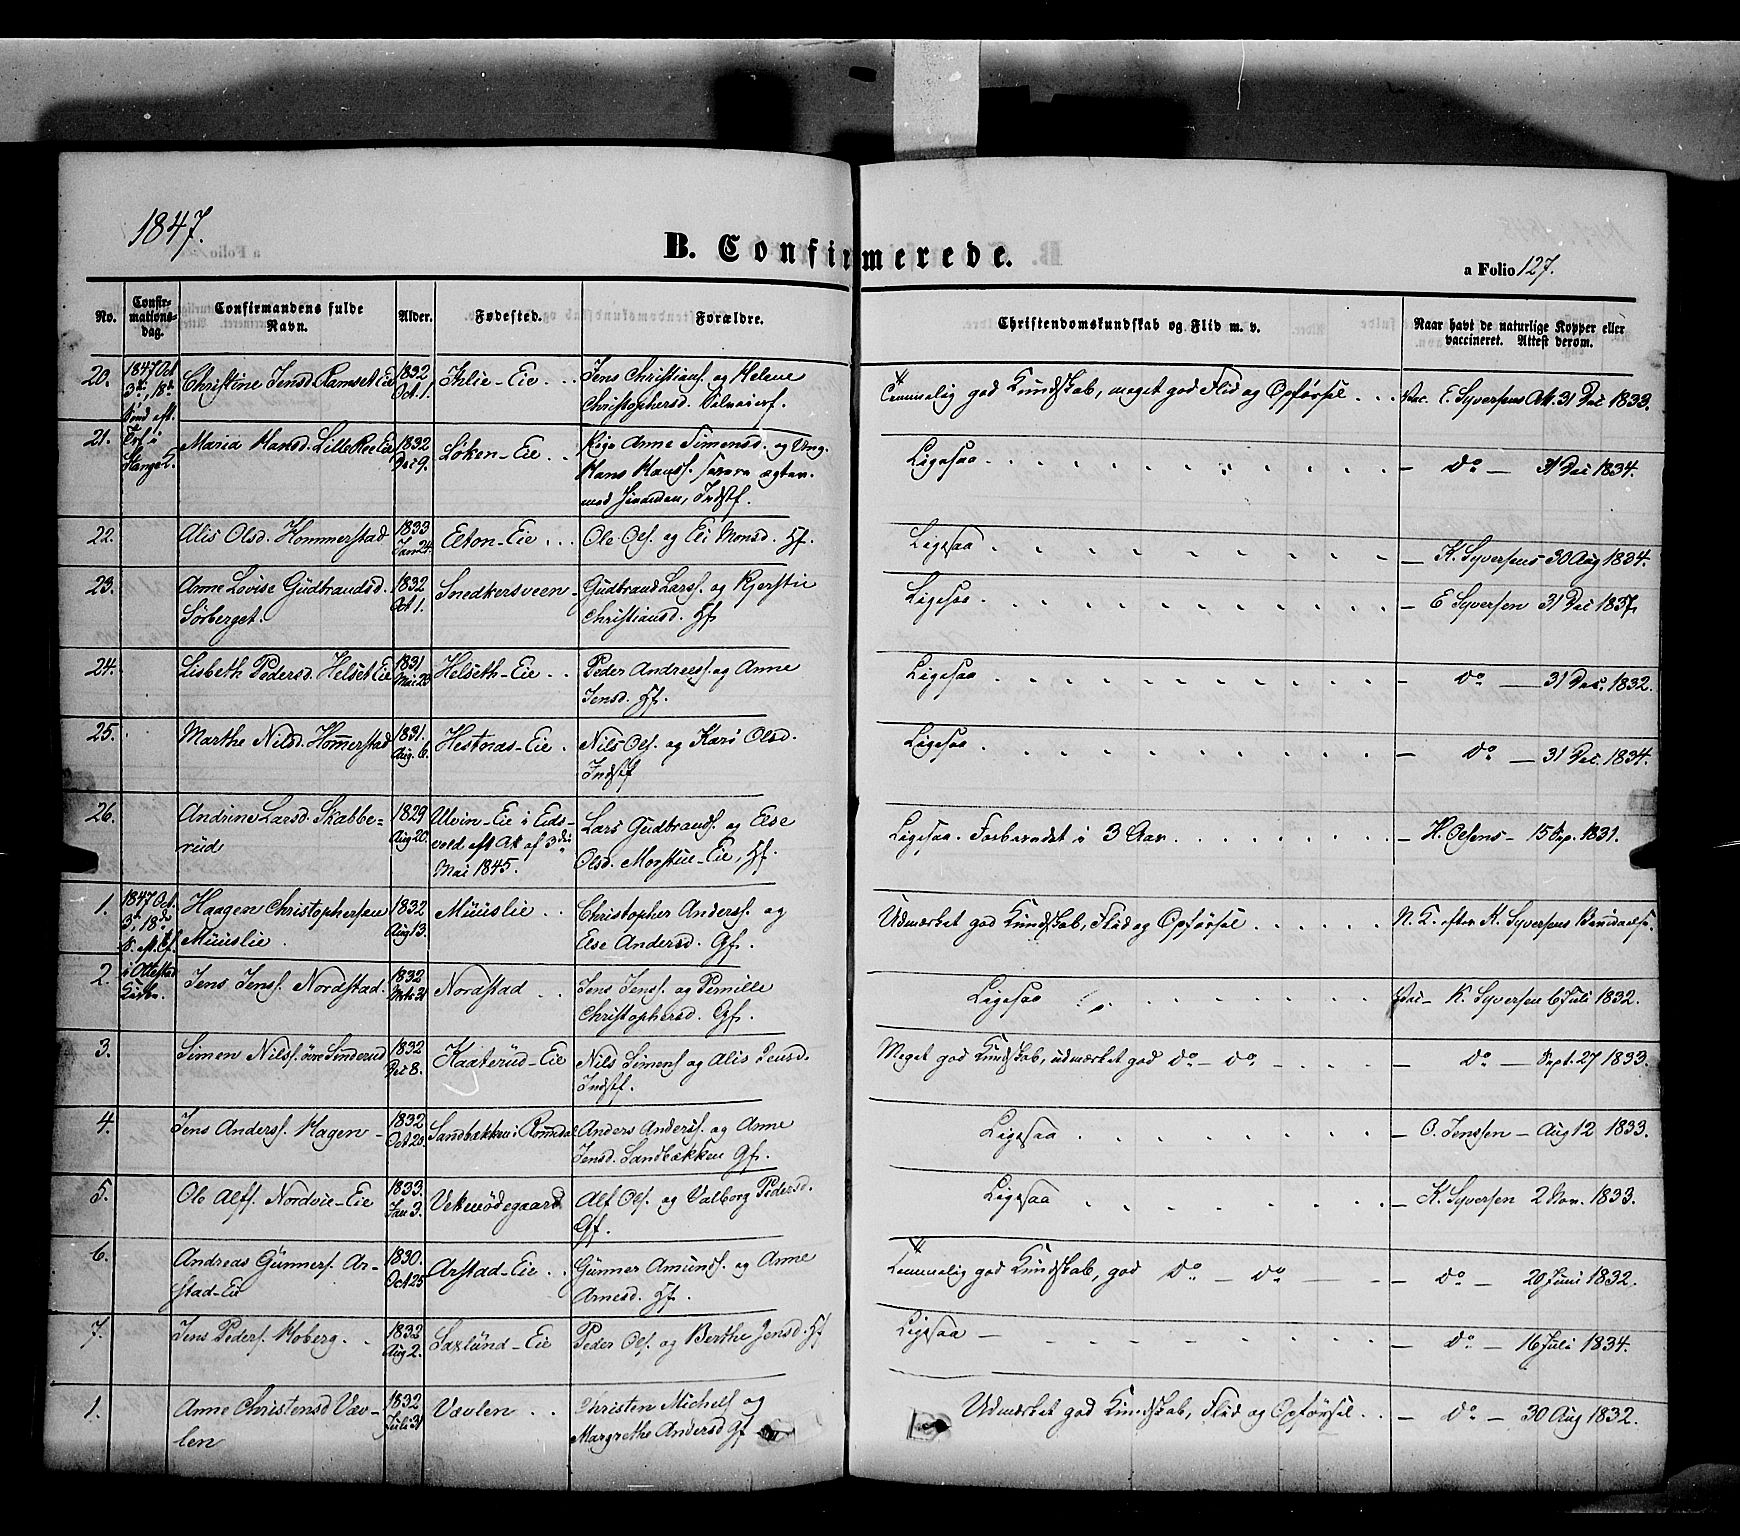 1847.
B. Confirmerede.
a Folio 127.
No.
Confir-
mations-
dag.
Confirmandens fulde
Navn.
Alder.
Fødested.
Forældre.
Christendomskundskab og Flid m. v.
Naar havt de naturlige Kopper eller
vaccineret. Attest derom.
20. 1847 Oct 3die, 18de Christine Jensd. Ramset Eie 1832 Oct. 1. Ihlie-Eie Jens Christians. og Helene
Christophersd.
Temmelig god Kundskab, meget god Flid og Opførsel Vac. E. Syversens Att. 31 Dec 1833.
Sønd. eft. Trf. i Stange K.
21. Maria Hansd. Lille Ree Eie 1832 Dec 9. Løken-Eie Pige Anne Simensd. og Ung.
Hans Hanss.
med hinanden, Indstf.
Ligesaa do 31 Dec 1834.
22. Alis Olsd. Hommerstad 1833 Jan 24. Elton-Eie Ole Ols. og Eli Monsd. Hf.
Ligesaa K. Syversens 30 Aug 1834.
23. Anne Lovise Gudbrandsd.
Sörberget.
1832 Oct 1. Snedkersveen Gudbrand Larss. og Kjerstie
Christiansd. Hf.
Ligesaa E Syversen 31 Dec 1837.
24. Lisbeth Pedersd. Helset Eie 1831 Mai 20 Helseth-Eie Peder Andreess. og Anne
Jensd. Hf.
Ligesaa do 31 Dec. 1832.
25. Marthe Nilsd. Hommerstad 1831. Aug. 6. Hestnæs-Eie Nils Ols. og Kari Olsd.
Indstf
Ligesaa do 31 Dec. 1834.
26. Andrine Larsd. Skabbe-
rud
1829 Aug 20. Ulvin-Eie i Eids-
vold eft Att. af 3die
Mai 1845.
Lars Gudbrands. og Else
Olsd. Morstue-Eie, Hf.
Ligesaa. Forberedet i 3 Aar H. Olsens 15 Sep. 1831.
1. 1847 Oct. 3die, 18de Haagen Christophersen
Muuslie
1832 Aug 13. Muuslie Christopher Anderss. og
Else Andersd. Gf.
Udmærket god Kundskab, Flid og Opførsel N. K. efter K. Syversens
S. eft. Trf. i Ottestad Kirke.
2. Jens Jenss. Nordstad 1832 Nordstad Jens Jenss. og Pernille
Christophersd. Gf.
Ligesaa Vac K. Syversen 6 Juli 1832.
3. Simen Nilss. øvre Sinderud 1832 Dec 8. Kaaterud-Eie Nils Simens. og Alis Jensd.
Indstf.
Meget god Kundskab, udmærket god do do do Sept. 27 1833.
4. Jens Anderss. Hagen 1832 Sandbækken i Romedal Anders Anderss. og Anne
Jensd. Sandbækken Gf.
Ligesaa O. Jenssen Aug 12 1833.
5. Ole Alfs. Nordvie-Eie 1833. Jan 3. Vekenødegaard Alf Ols. og Valborg Pedersd.
Gf.
Ligesaa K. Syversen 2 Nov. 1833.
6. Andreas Gunners. Ar-
stad-Eie
1830. Oct 25 Arstad-Eie Gunner Amunds. og Anne
Arnesd. Hf.
Temmelig god Kundskab, god do do do 20 Juni 1832.
7. Jens Peders. Hoberg. 1832 Aug 2. Saxlund-Eie Peder Ols. og Berthe Jensd. Hf
Ligesaa do 16 Juli 1834.
1. Anne Christensd Væv-
len
1832 Juli 31 Vævlen Christen Michels og
Margrethe Andersd Gf
Udmærket god Kundskab, Flid og Opførsel do 30 Aug 1832.